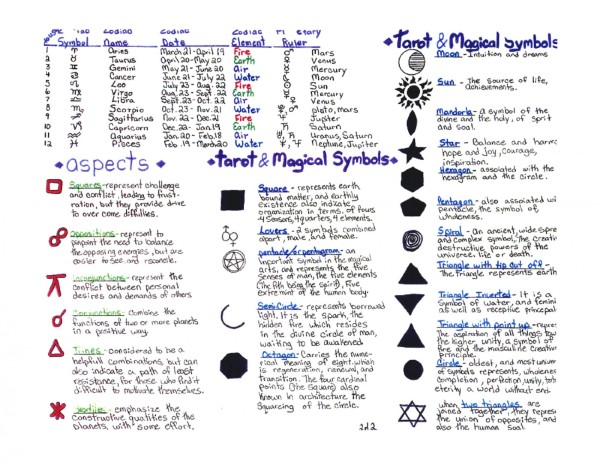 Symbol Name Date Element Ruler
1 Aries March 21-April 19 Fire Mars
2 Taurus April 20-May 20 Earth Venus
3 Gemini May 21-June 20 Air Mercury
4 Cancer June 21-July 22 Water Moon
5 Leo July 23-Aug. 22 Fire Sun
6 Virgo Aug. 23-Sept. 22 Earth Mercury
7 Libra Sept. 23-Oct. 22 Air Venus
8 Scorpio Oct. 23-Nov. 21 Water pluto, mars
9 Sagittarius Nov. 22-Dec. 21 Fire Jupiter
10 Capricorn Dec. 22-Jan. 19 Earth Saturn
11 Aquarius Jan. 20-Feb. 18 Air Uranus, Saturn
12 Pisces Feb. 19-March 20 Water Neptune, Jupiter
aspects
Squares - represent challenge
and conflict leading to frust-
ration, but they provide drive
to over come
Oppositions - represent to
pinpoint the need to balance
the opposing energies, but are
easier to see and resolve.
represent the
conflict between personal
desires and demands of others.
Conjunctions - Combine the
functions of two or more planets
in a positive way.
Trines - considered to be a
helpful combinations, but can
also indicate a path of least
resistance, for those who find it
difficult to motivate themselves.
emphasize the
constructive qualities of the
planets, with some effort.
Tarot & Magical Symbols
Square - represents earth
bound matter, and earthly
existence also indicate
organization in terms, of fours
4 Seasons, 4 quarters, 4 elements.
Lovers - 2 symbols combined
apart, male, and female.
pentacle/or pentagram - an
important symbol in the magical
arts, and represents the five
senses of man, the five elements
(the fifth being the spirit), Five
extrement of the human body.
Semi Circle - represents borrowed
light, It is the spark, the
hidden fire which resides
in the divine circle of man,
waiting to be awakened
Octagon - Carries the nume-
rical meaning of eight, which
is regeneration, renewal, and
transition. The four cardinal
points (the square) also
known in architecture the
Squaring of the circle.
2 of 2
Tarot & Magical Symbols
Moon - Intuition and dreams
Sun - The source of life,
achievements.
Mandorla - a symbol of the
divine and the holy, of spirit
and soul.
Star - Balance and harmo
hope and joy, courage,
inspiration.
Hexagon - associated with the
hexagram and the circle.
Pentagon - also associated wi
pentacle, the symbol of
wholeness.
Spiral - An ancient, wide spre
and complex symbol, the creati
destructive powers of the
universe, life or death.
Triangle with tip cut off -
The Triangle represents earth
Triangle Inverted - It is a
symbol of water, and femini
as well as receptive principal
Triangle with point up - repre
The aspiration of all things to
the higher, unity, a Symbol of
fire and the masculine creative
principle.
Circle - oldest, and most univer
of symbols represents, wholene
completion, perfection, unity, tot
eternity a world without end.
when two triangles are
joined together, they repres
the union of opposites, and
also the human Soul.